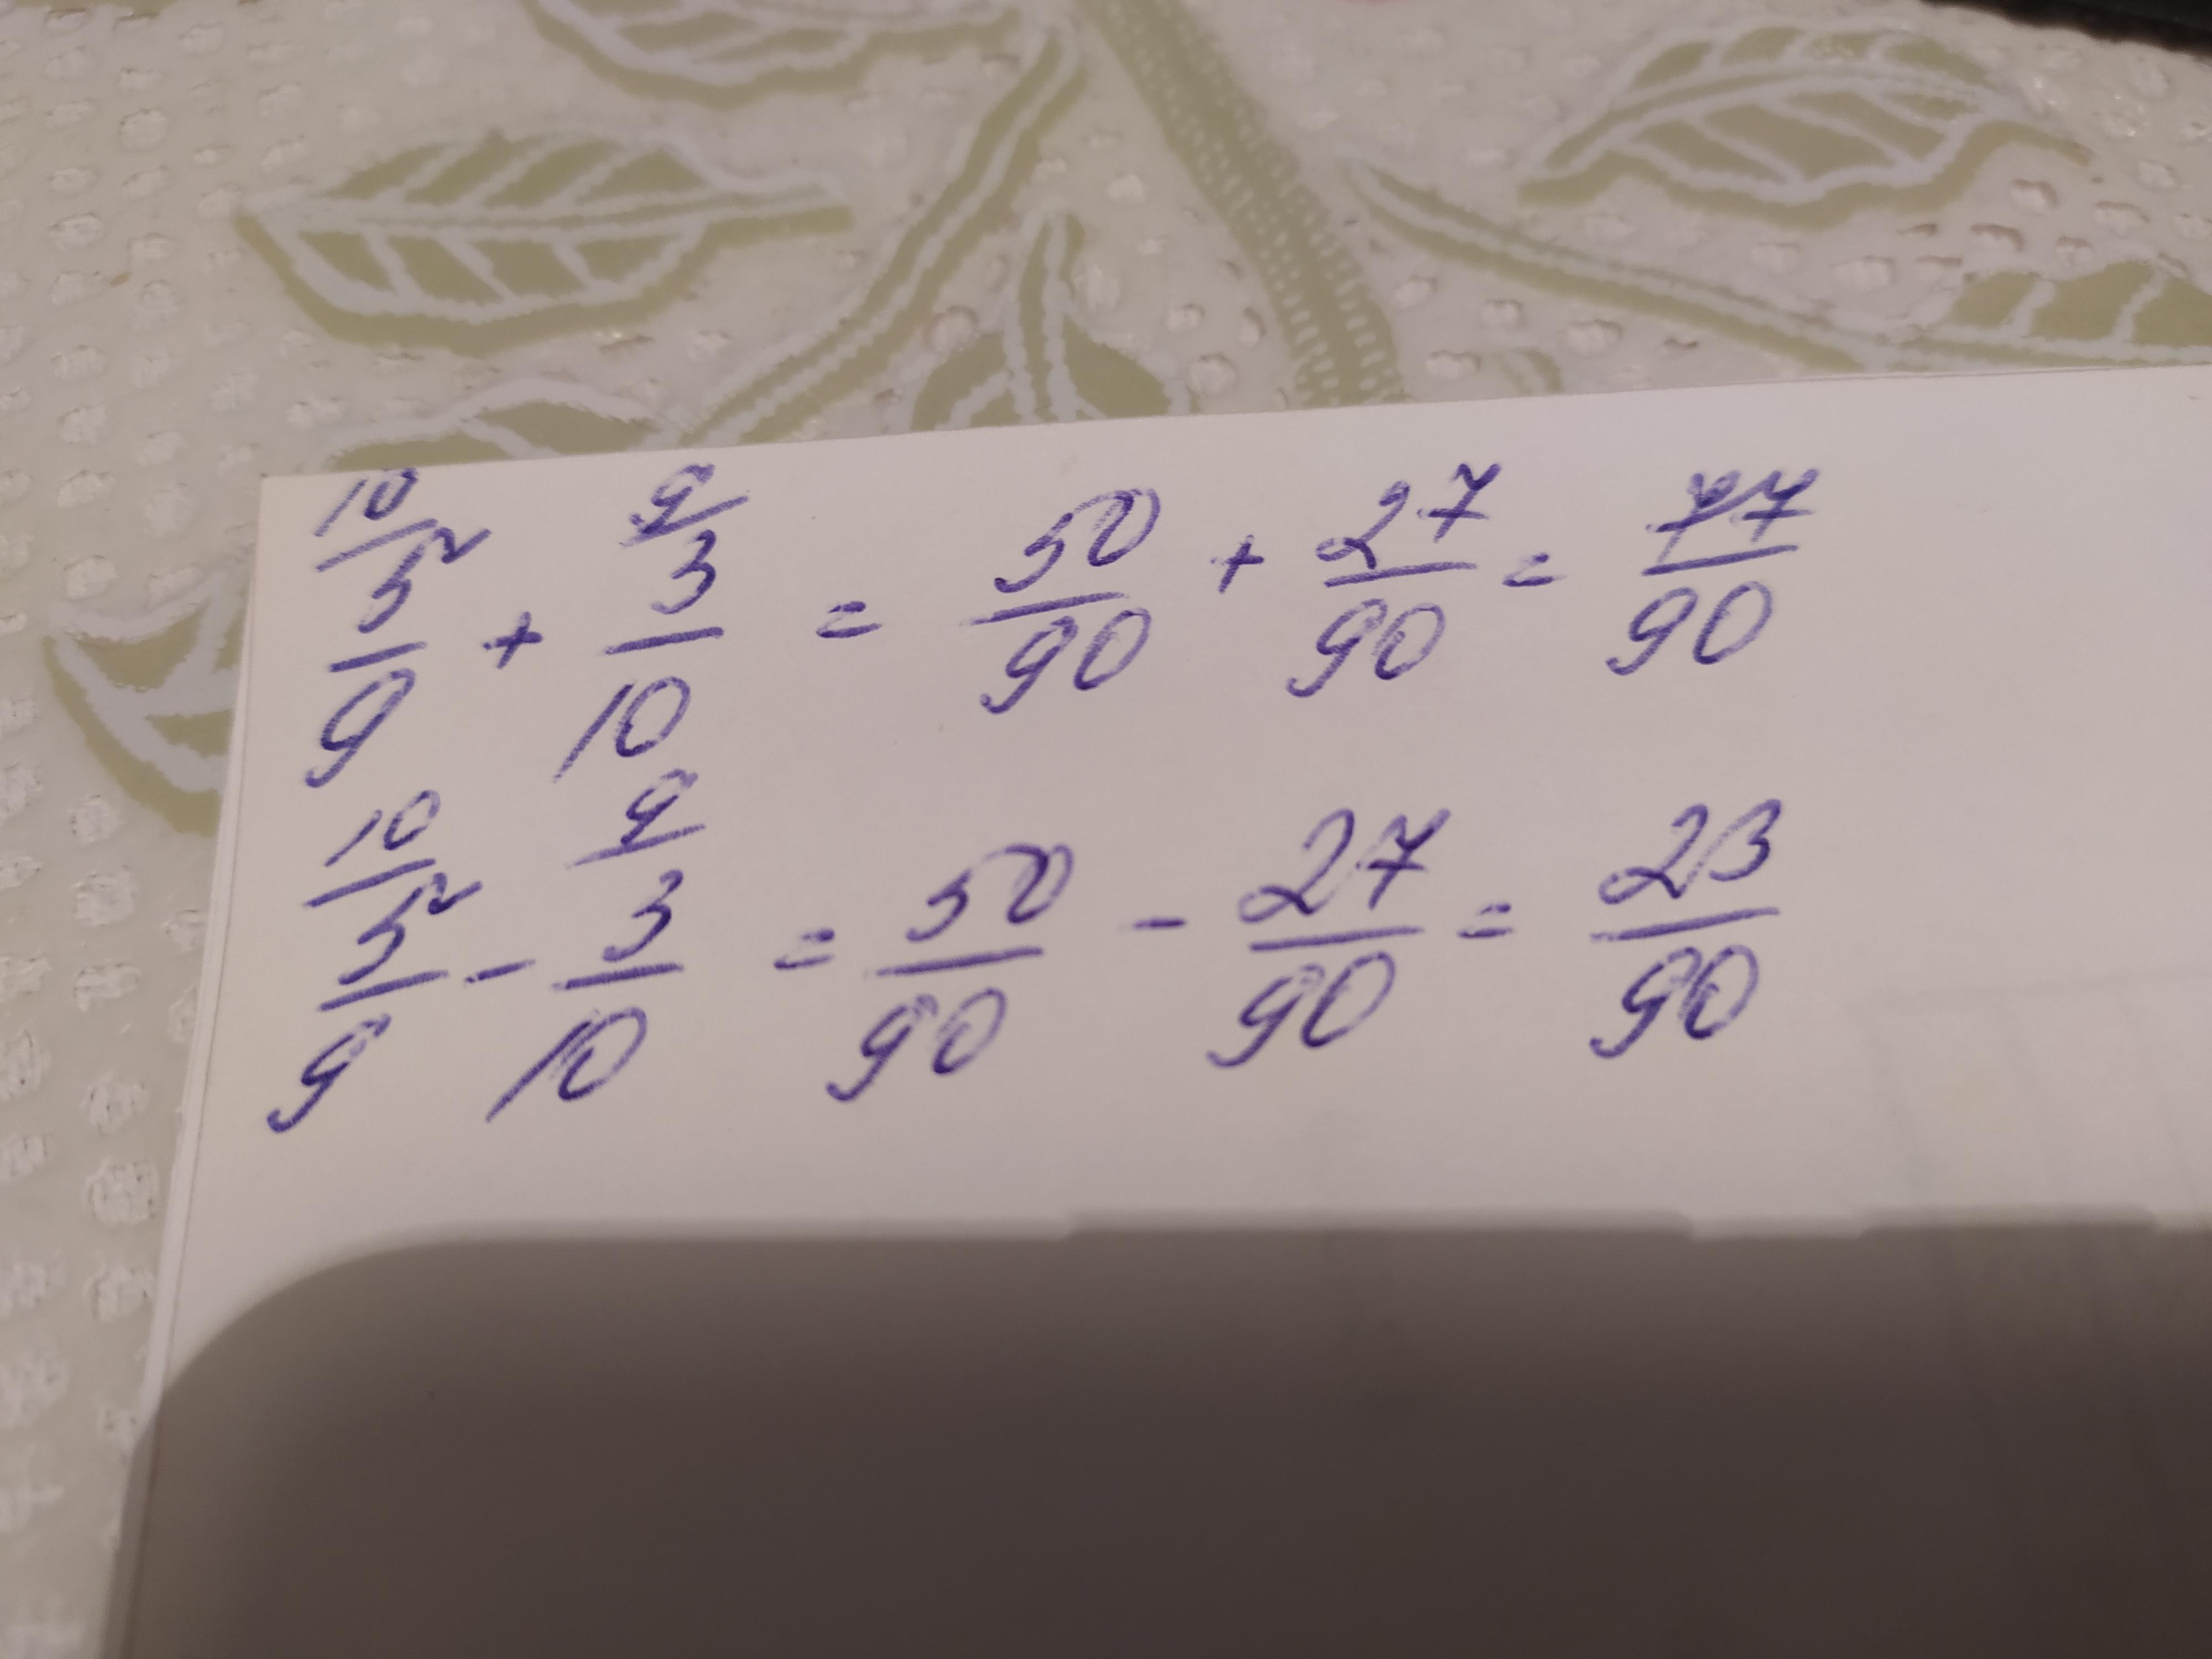 10/ 5/9 + 9/ 3/10 = 50/90 + 27/90 = 77/90
10/ 5/9 - 9/ 3/10 = 50/90 - 27/90 = 23/90